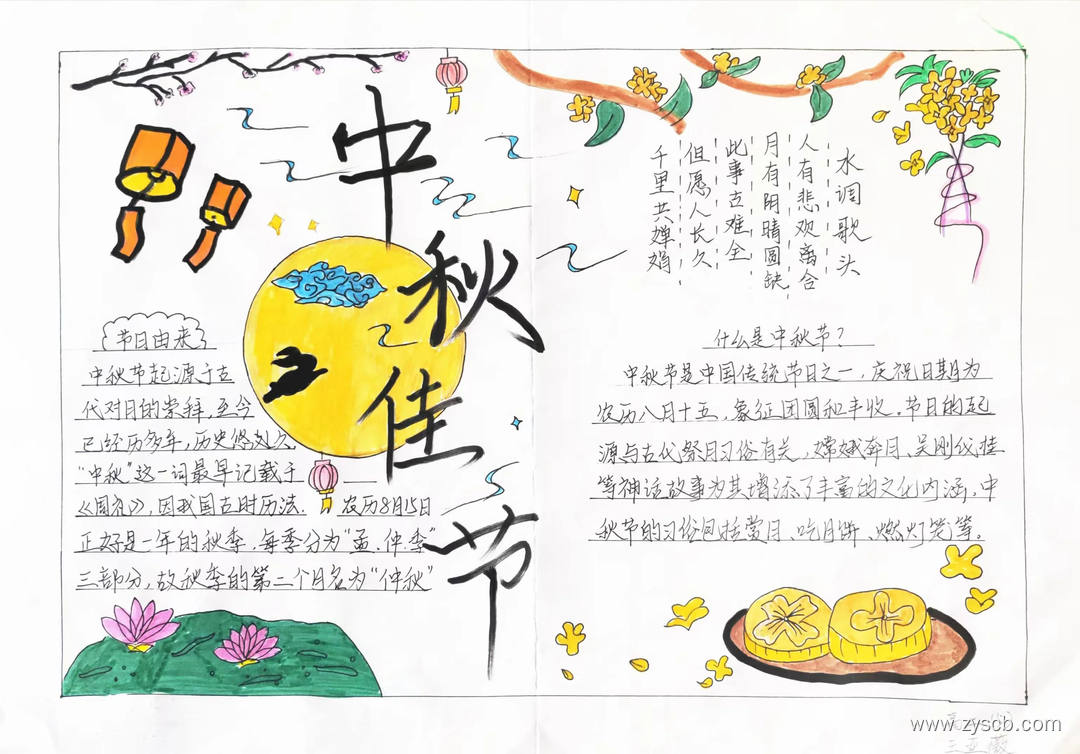 中秋佳节
节日由来
中秋节起源于古
代对月的崇拜，至今
已经历多年，历史悠久，
“中秋”这一词最早记载于
《周礼》，因我国古时历法． 农历8月15日
正好是一年的秋季，每季分为“孟．仲．季”
三部分，故秋季的第二个月名为“仲秋”
水调歌头
人有悲欢离合
月有阴晴圆缺
此事古难全
但愿人长久
千里共婵娟
什么是中秋节？
中秋节是中国传统节日之一，庆祝日期为
农历八月十五，象征团圆和丰收。节日的起
源与古代祭月习俗有关，嫦娥奔月、吴刚伐桂
等神话故事为其增添了丰富的文化内涵，中
秋节的习俗包括赏月、吃月饼、燃灯笼等。
www.zyscb.com